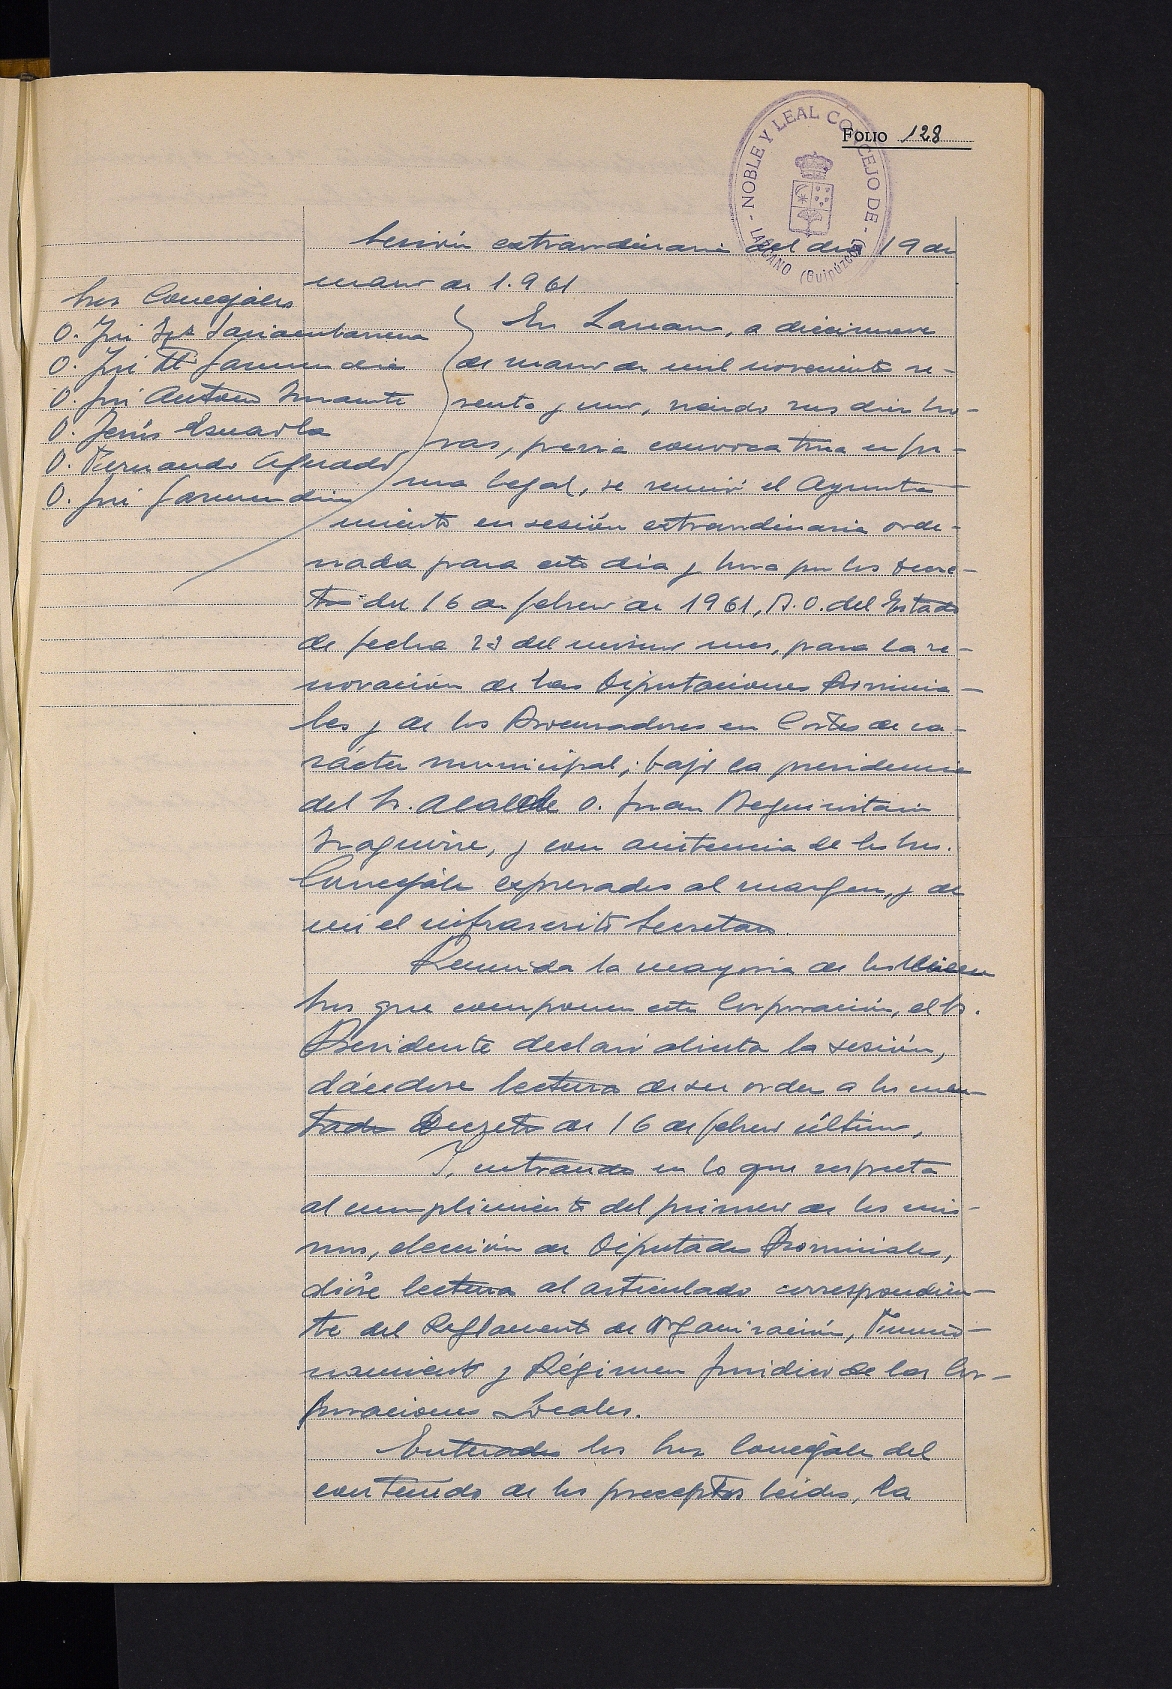 FOLIO 128
- NOBLE Y LEAL CONCEJO DE -
LAZCANO (Guipúzcoa)
Sesión extraordinaria del día 19 de
marzo de 1.961
Sres Concejales
D. José
D. José Mª Garmendia
D. José Antonio
D. Jesús
D. Fernando Aguado
D. José Garmendia
En Lazcano, a diecinueve
de marzo de mil novecientos se-
senta y uno, siendo sus diez ho-
ras, previa convocatoria en for-
ma legal, se reunió el Ayunta-
miento en sesión extraordinaria orde-
nada para este día y hora por los Decre-
tos del 16 de febrero de 1961, B.O. del Estado
de fecha 23 del mismo mes, para la re-
novación de las Diputaciones Provincia-
les y de los Procuradores en Cortes de ca-
rácter municipal; bajo la presidencia
del Sr. Alcalde D. Juan Beguiristain
, y con asistencia de los Sres.
Concejales expresados al margen, y de
mi el infrascrito Secretario.
Reunida la mayoría de los miem
bros que componen esta Corporación, el Sr.
Presidente declaró abierta la sesión,
dándose lectura de su orden a los men-
tados Decretos de 16 de febrero último.
Y, entrando en lo que respecta
al cumplimiento del primero de los mis-
mos, elección de Diputados Provinciales,
dióse lectura al articulado correspondien-
te del Reglamento de Organización, Funcio-
namiento y Régimen Jurídico de las Cor-
poraciones Locales.
Enterados los Sres Concejales del
contenido de los preceptos leidos, la